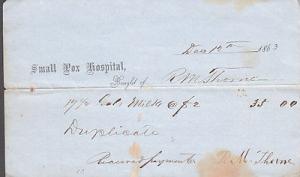 Dec 12th 1863
Small Pox Hospital,
Bought of R. M. Thorne
Gals Milk 35 00
Duplicate
Received payment R. M. Thorne